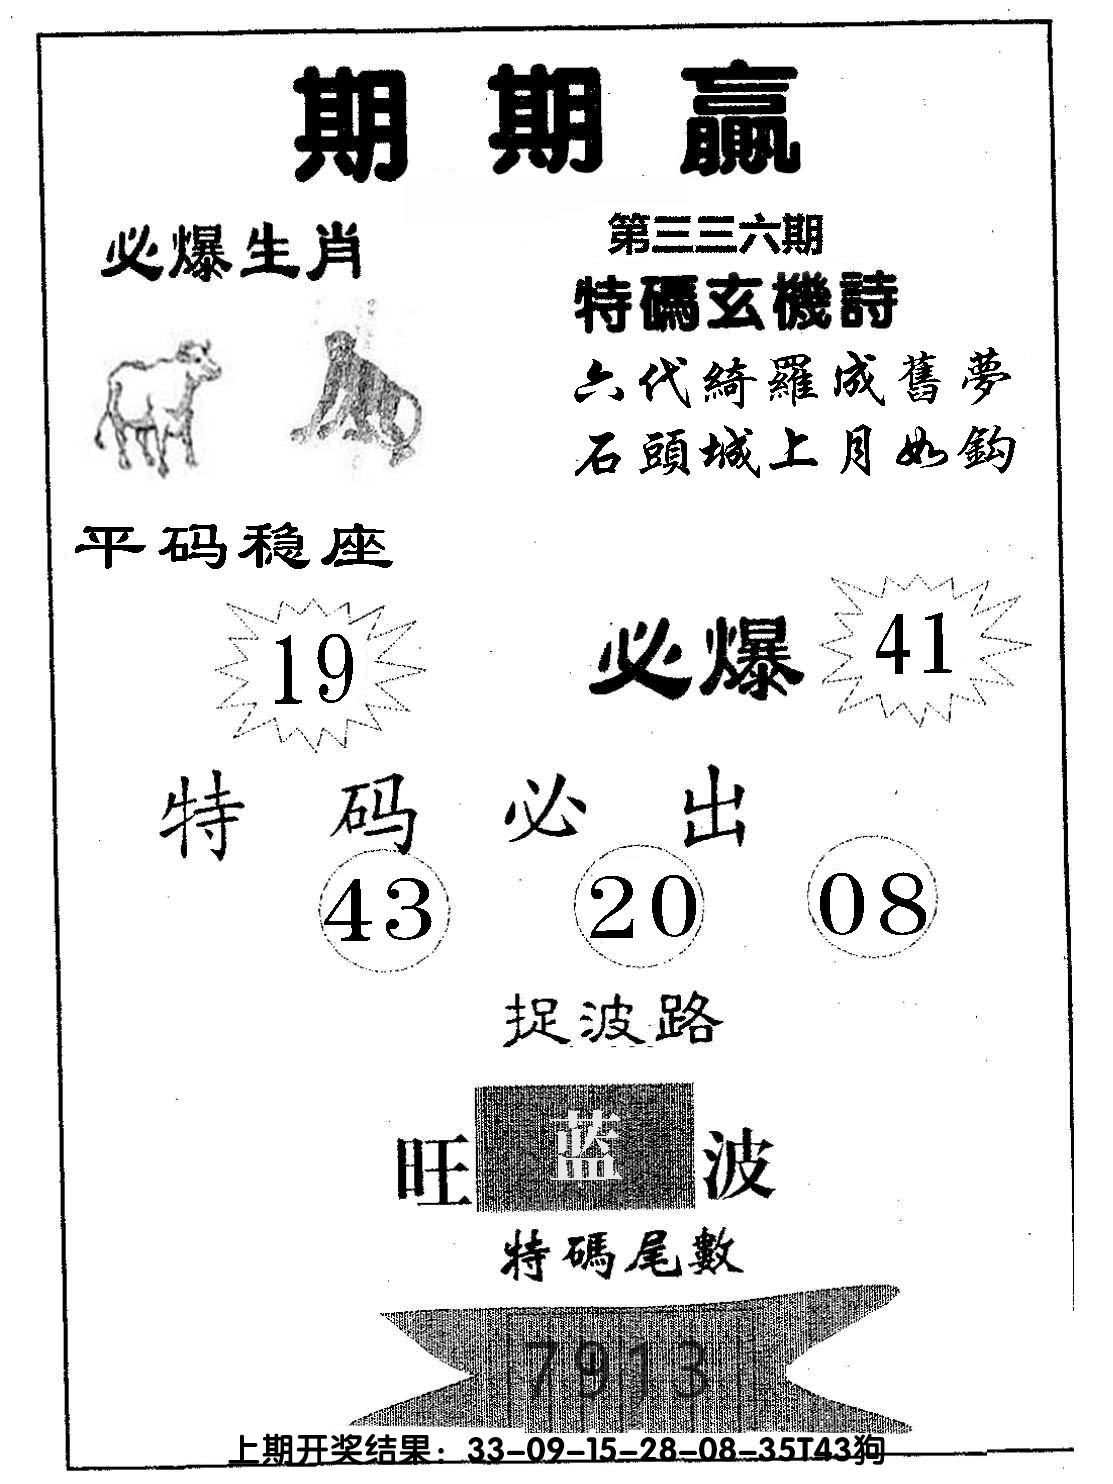 期期赢
必爆生肖
第三三六期
特碼玄機詩
六代綺羅成舊夢
石頭城上月如鈎
平码稳座
19
必爆 41
特码必出
43 20 08
捉波路
旺蓝波
特碼尾數
7913
上期开奖结果：33-09-15-28-08-35T43狗